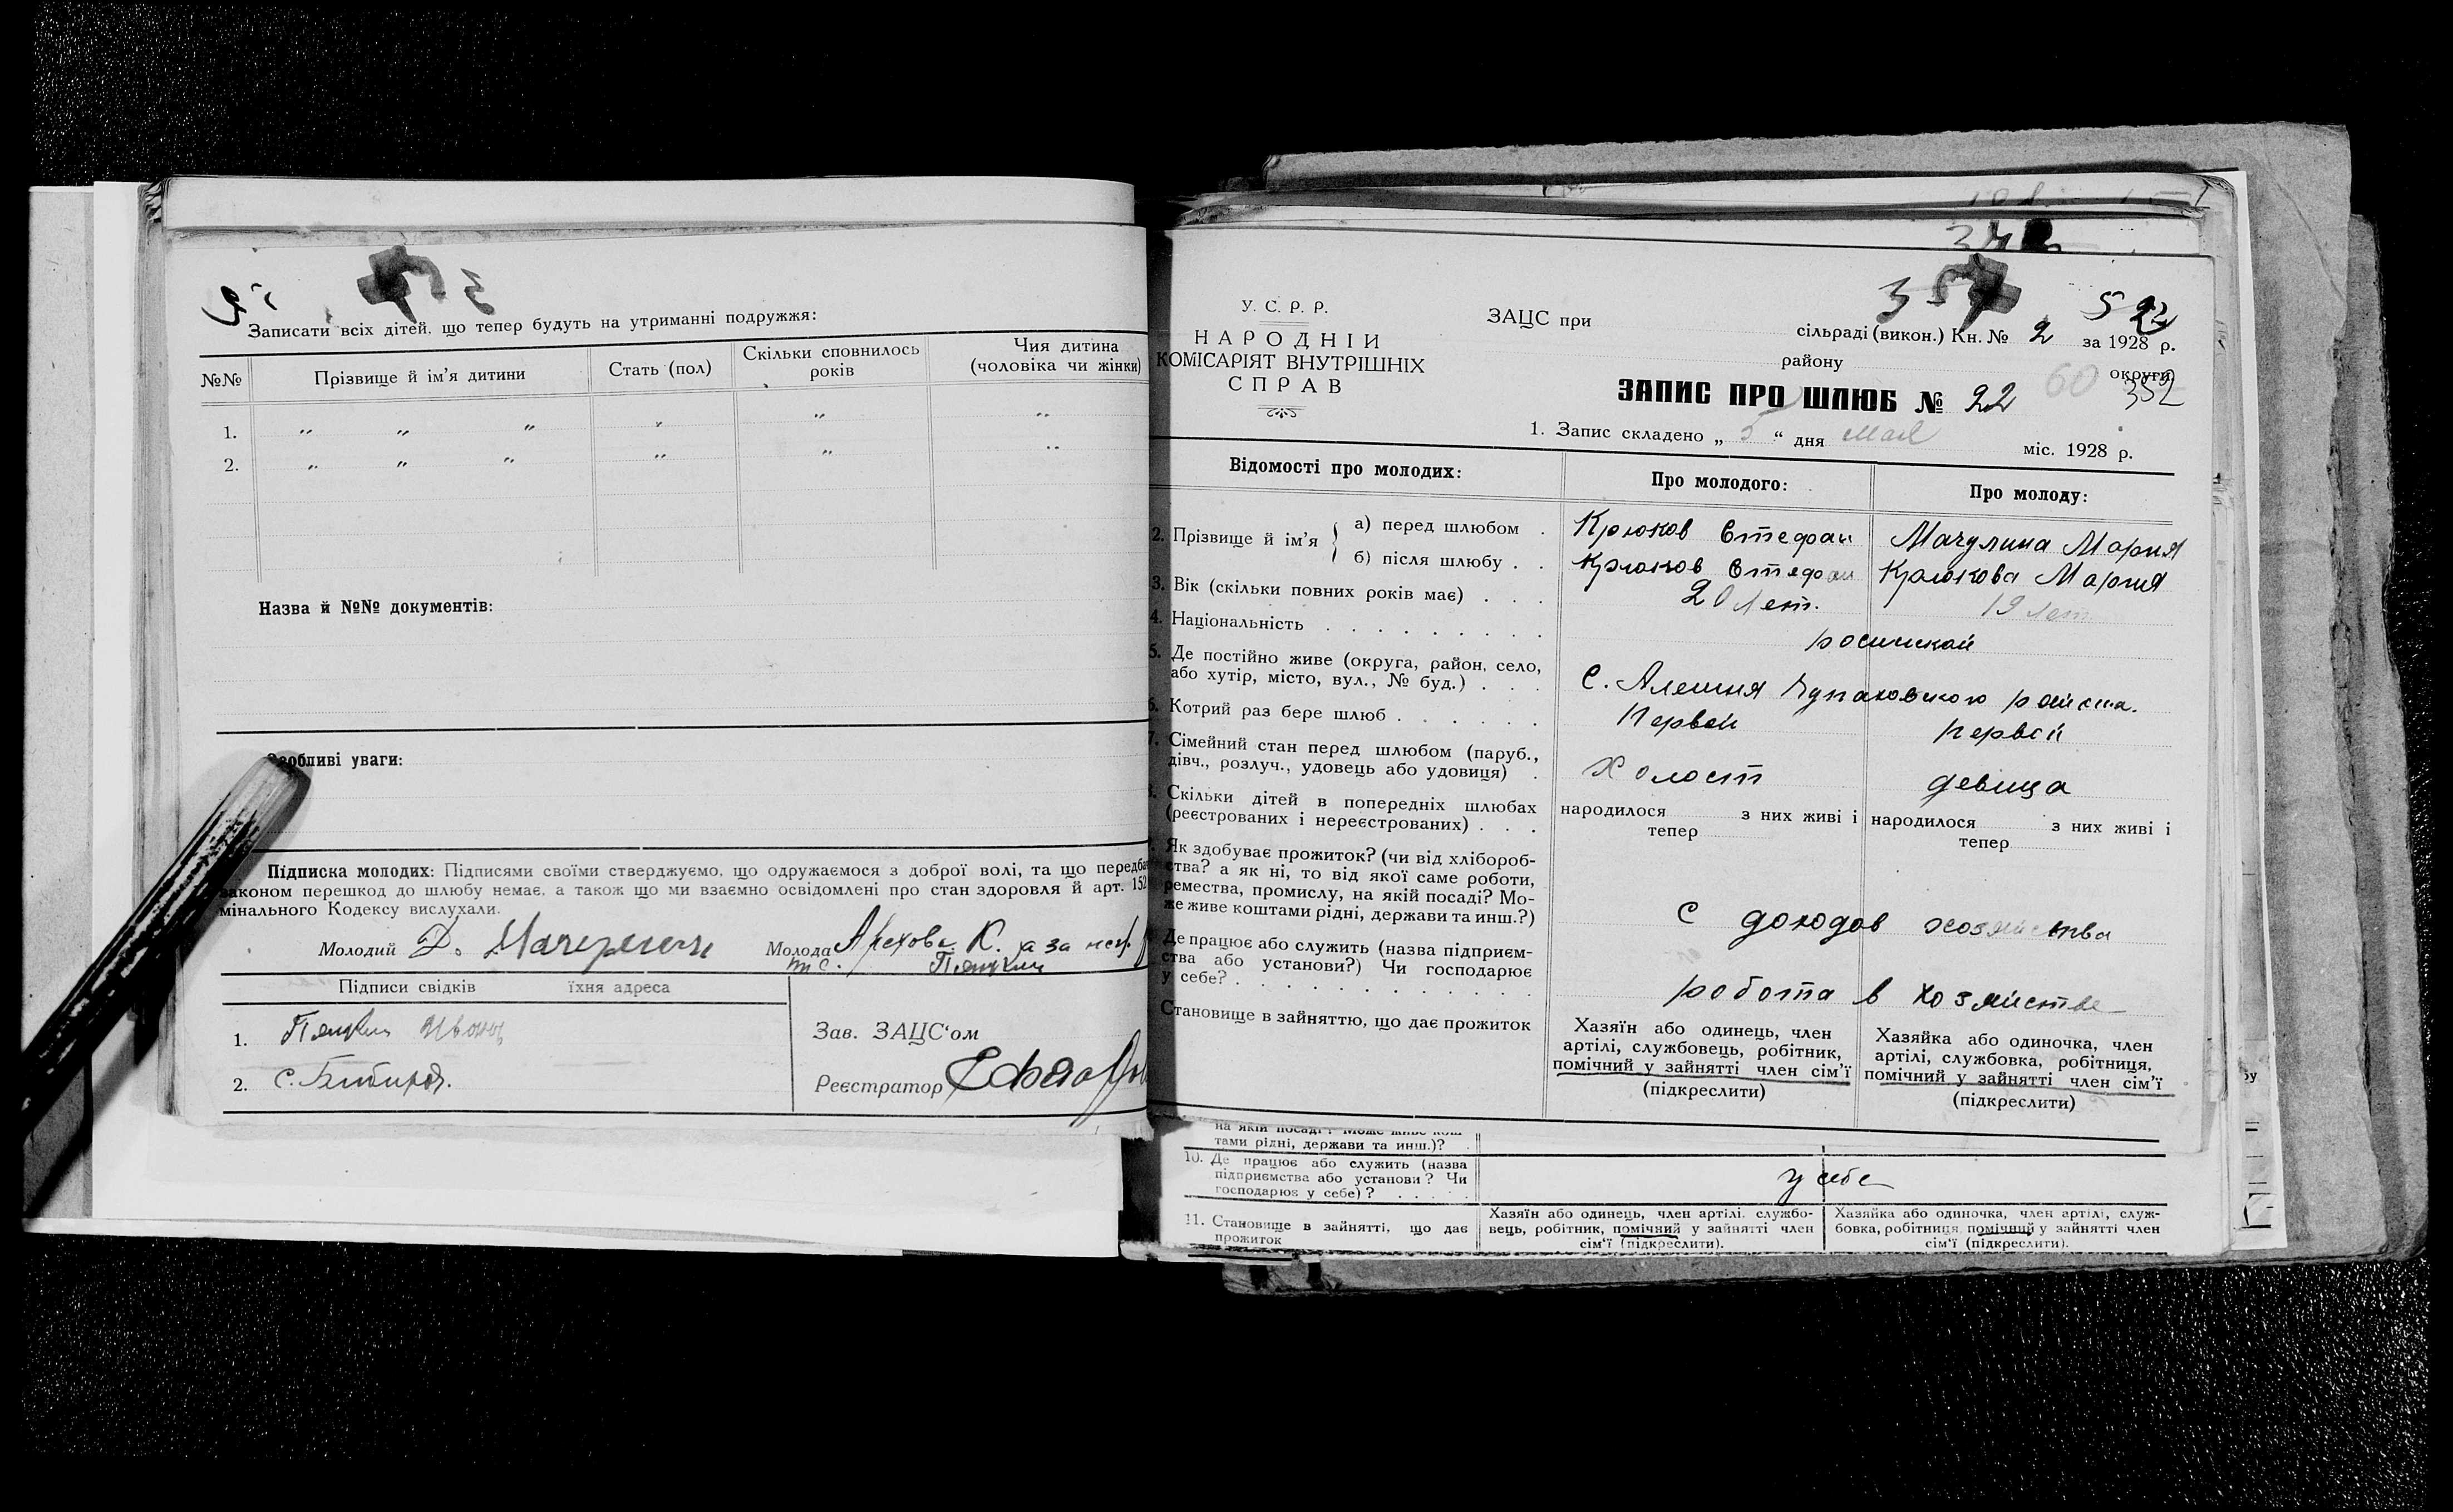 Записати всіх дітей, що тепер будуть на утриманні подружжя:
№№ Прізвище й ім'я дитини Стать (пол) Скільки сповнилось років Чия дитина (чоловіка чи жінки)
1. „ „ „ „ „ „
2. „ „ „ „ „ „
Назва й №№ документів:
Особливі уваги:
Підписка молодих: Підписями своїми стверджуємо, що одружаємося з доброї волі, та що передба
законом перешкод до шлюбу немає, а також що ми взаємно освідомлені про стан здоровля й арт. 152
мінального Кодексу вислухали.
Молодий Д. Молода К. а за
Підписи свідків їхня адреса
1.
2. С.
Зав. ЗАЦС'ом
Реєстратор
У. С. Р. Р.
НАРОДНІЙ
КОМІСАРІЯТ ВНУТРІШНІХ
СПРАВ
357
5 22
ЗАЦС при
сільраді (викон.) Кн. № 2 за 1928 р.
району округи
60 352
ЗАПИС ПРО ШЛЮБ № 22
1. Запис складено „ 5 “ дня мая міс. 1928 р.
Відомості про молодих: Про молодого: Про молоду:
2. Прізвище й ім'я { а) перед шлюбом . Крюков Стефан Мачулина Мария
б) після шлюбу . . Крюков Стефан Крюкова Мария
3. Вік (скільки повних років має) . . . 20 лет. 19 лет
4. Національність . . . . . . . . .
5. Де постійно живе (округа, район, село,
або хутір, місто, вул., № буд.) . . . С. Алешня района.
6. Котрий раз бере шлюб . . . . . . Первой первой
7. Сімейний стан перед шлюбом (паруб.,
дівч., розлуч., удовець або удовиця) . Холост девица
8. Скільки дітей в попередніх шлюбах
(реєстрованих і нереєстрованих) . . .
народилося з них живі і
тепер
народилося з них живі і
тепер
Як здобуває прожиток? (чи від хлібороб-
ства? а як ні, то від якої саме роботи,
ремества, промислу, на якій посаді? Мо-
же живе коштами рідні, держави та инш.?)
С доходов хозяйства
Де працює або служить (назва підприєм-
ства або установи?) Чи господарює
у себе? . . . . . . . . . . . . .
робота в хозяйстве
Становище в зайняттю, що дає прожиток
Хазяїн або одинець, член
артілі, службовець, робітник,
помічний у зайнятті член сім'ї
(підкреслити)
Хазяйка або одиночка, член
артілі, службовка, робітниця,
помічний у зайнятті член сім'ї
(підкреслити)
тами рідні, держави та инш.)?
10. Де працює або служить (назва
підприємства або установи? Чи
господарює у себе)? . . . . .
у себе
11. Становище в зайнятті, що дає
прожиток
Хазяїн або одинець, член артілі, службо-
вець, робітник, помічний у зайнятті член
сім'ї (підкреслити).
Хазяйка або одиночка, член артілі, служ-
бовка, робітниця, помічний у зайнятті член
сім'ї (підкреслити).